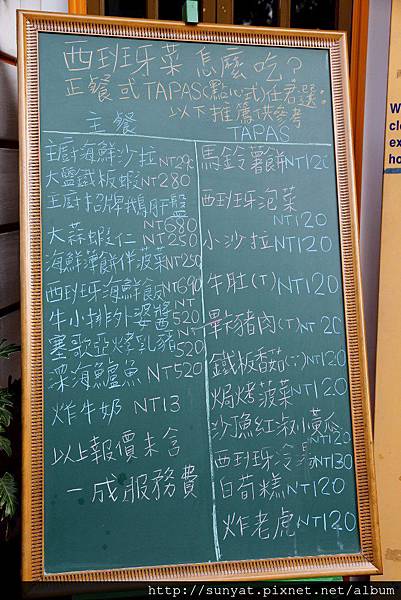 西班牙菜 怎麼吃?
正餐 或 TAPAS(點心式)任君選:
以下推薦供參考
主餐
主廚海鮮沙拉 NT290
大盤鐵板蝦 NT280
主厨招牌鵝肝盤
NT680
大蒜蝦仁 NT250
海鮮薄餅伴菠菜 NT250
西班牙海鮮飯 NT690
牛小排外婆醬 NT520
塞哥亞烤乳豬 520
深海鱸魚 NT520
炸牛奶 NT13
以上報價未含
一成服務費
TAPAS
馬鈴薯餅 NT120
西班牙泡菜
NT120
小沙拉 NT120
牛肚(T) NT120
豬肉(T) NT 20
鐵板香菇 NT120
焗烤菠菜 NT120
沙漁紅椒小黃瓜
NT120
西班牙冷湯 NT130
白荀糕 NT120
炸老虎 NT120
W
clo
ex
ho
http://sunyat.pixnet.net/album